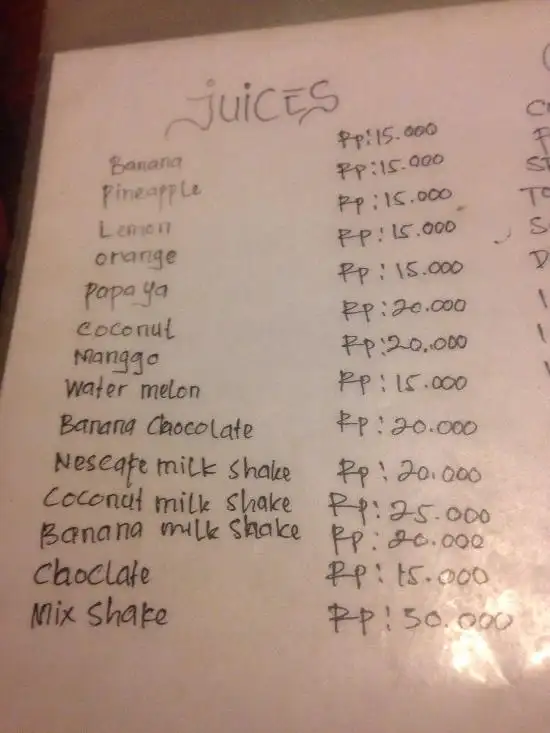 juices
Banana Rp: 15.000
Pineapple Rp: 15.000
Lemon Rp: 15.000
orange Rp: 15.000
papaya Rp: 15.000
coconut Rp: 20.000
Manggo Rp: 20.000
Water melon Rp: 15.000
Banana Chocolate Rp: 20.000
Nescafe milk shake Rp: 20.000
Coconut milk shake Rp: 25.000
Banana milk shake Rp: 20.000
Choclate Rp: 15.000
Mix shake Rp: 30.000